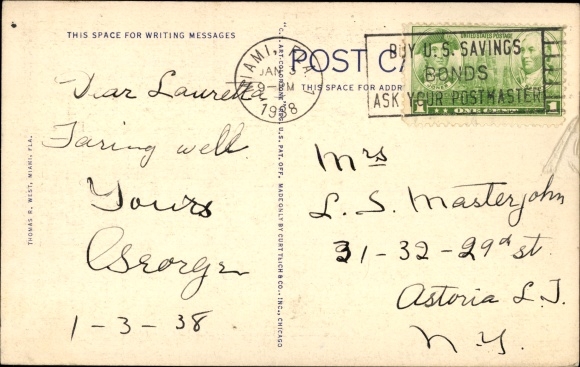 THIS SPACE FOR WRITING MESSAGES
POST CA
THIS SPACE FOR ADDR
MIAMI, FLA.
JAN 3
9 – PM
1938
BUY U.S. SAVINGS
BONDS
ASK YOUR POSTMASTER
UNITED STATES POSTAGE
1 ONE CENT 1
Dear Lauretta
Faring well.
Yours
George
1-3-38
Mrs
L. S. Masterjohn
31-32-29th st.
Astoria L.I.
N.Y.
THOMAS R. WEST, MIAMI, FLA.
"C.T. ART-COLORTONE" REG. U.S. PAT. OFF. MADE ONLY BY CURT TEICH & CO., INC., CHICAGO